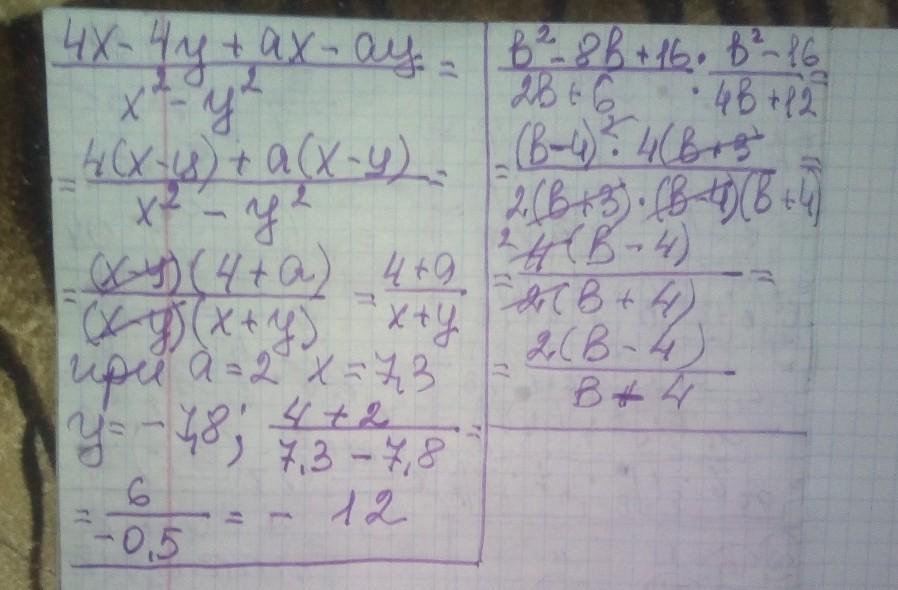 4x - 4y + ax - ay / x² - y² =
= 4(x-y) + a(x-y) / x² - y² =
= (x-y)(4+a) / (x-y)(x+y) = 4+a / x+y
при a=2 x=7,3
y=-7,8; 4+2 / 7,3-7,8 =
= 6 / -0,5 = - 12
в² - 8в + 16 / 2в + 6 : в² - 16 / 4в + 12 =
= (в-4)² · 4(в+3) / 2(в+3) · (в-4)(в+4) =
= 2 4(в-4) / 2(в+4) =
= 2(в-4) / в+4